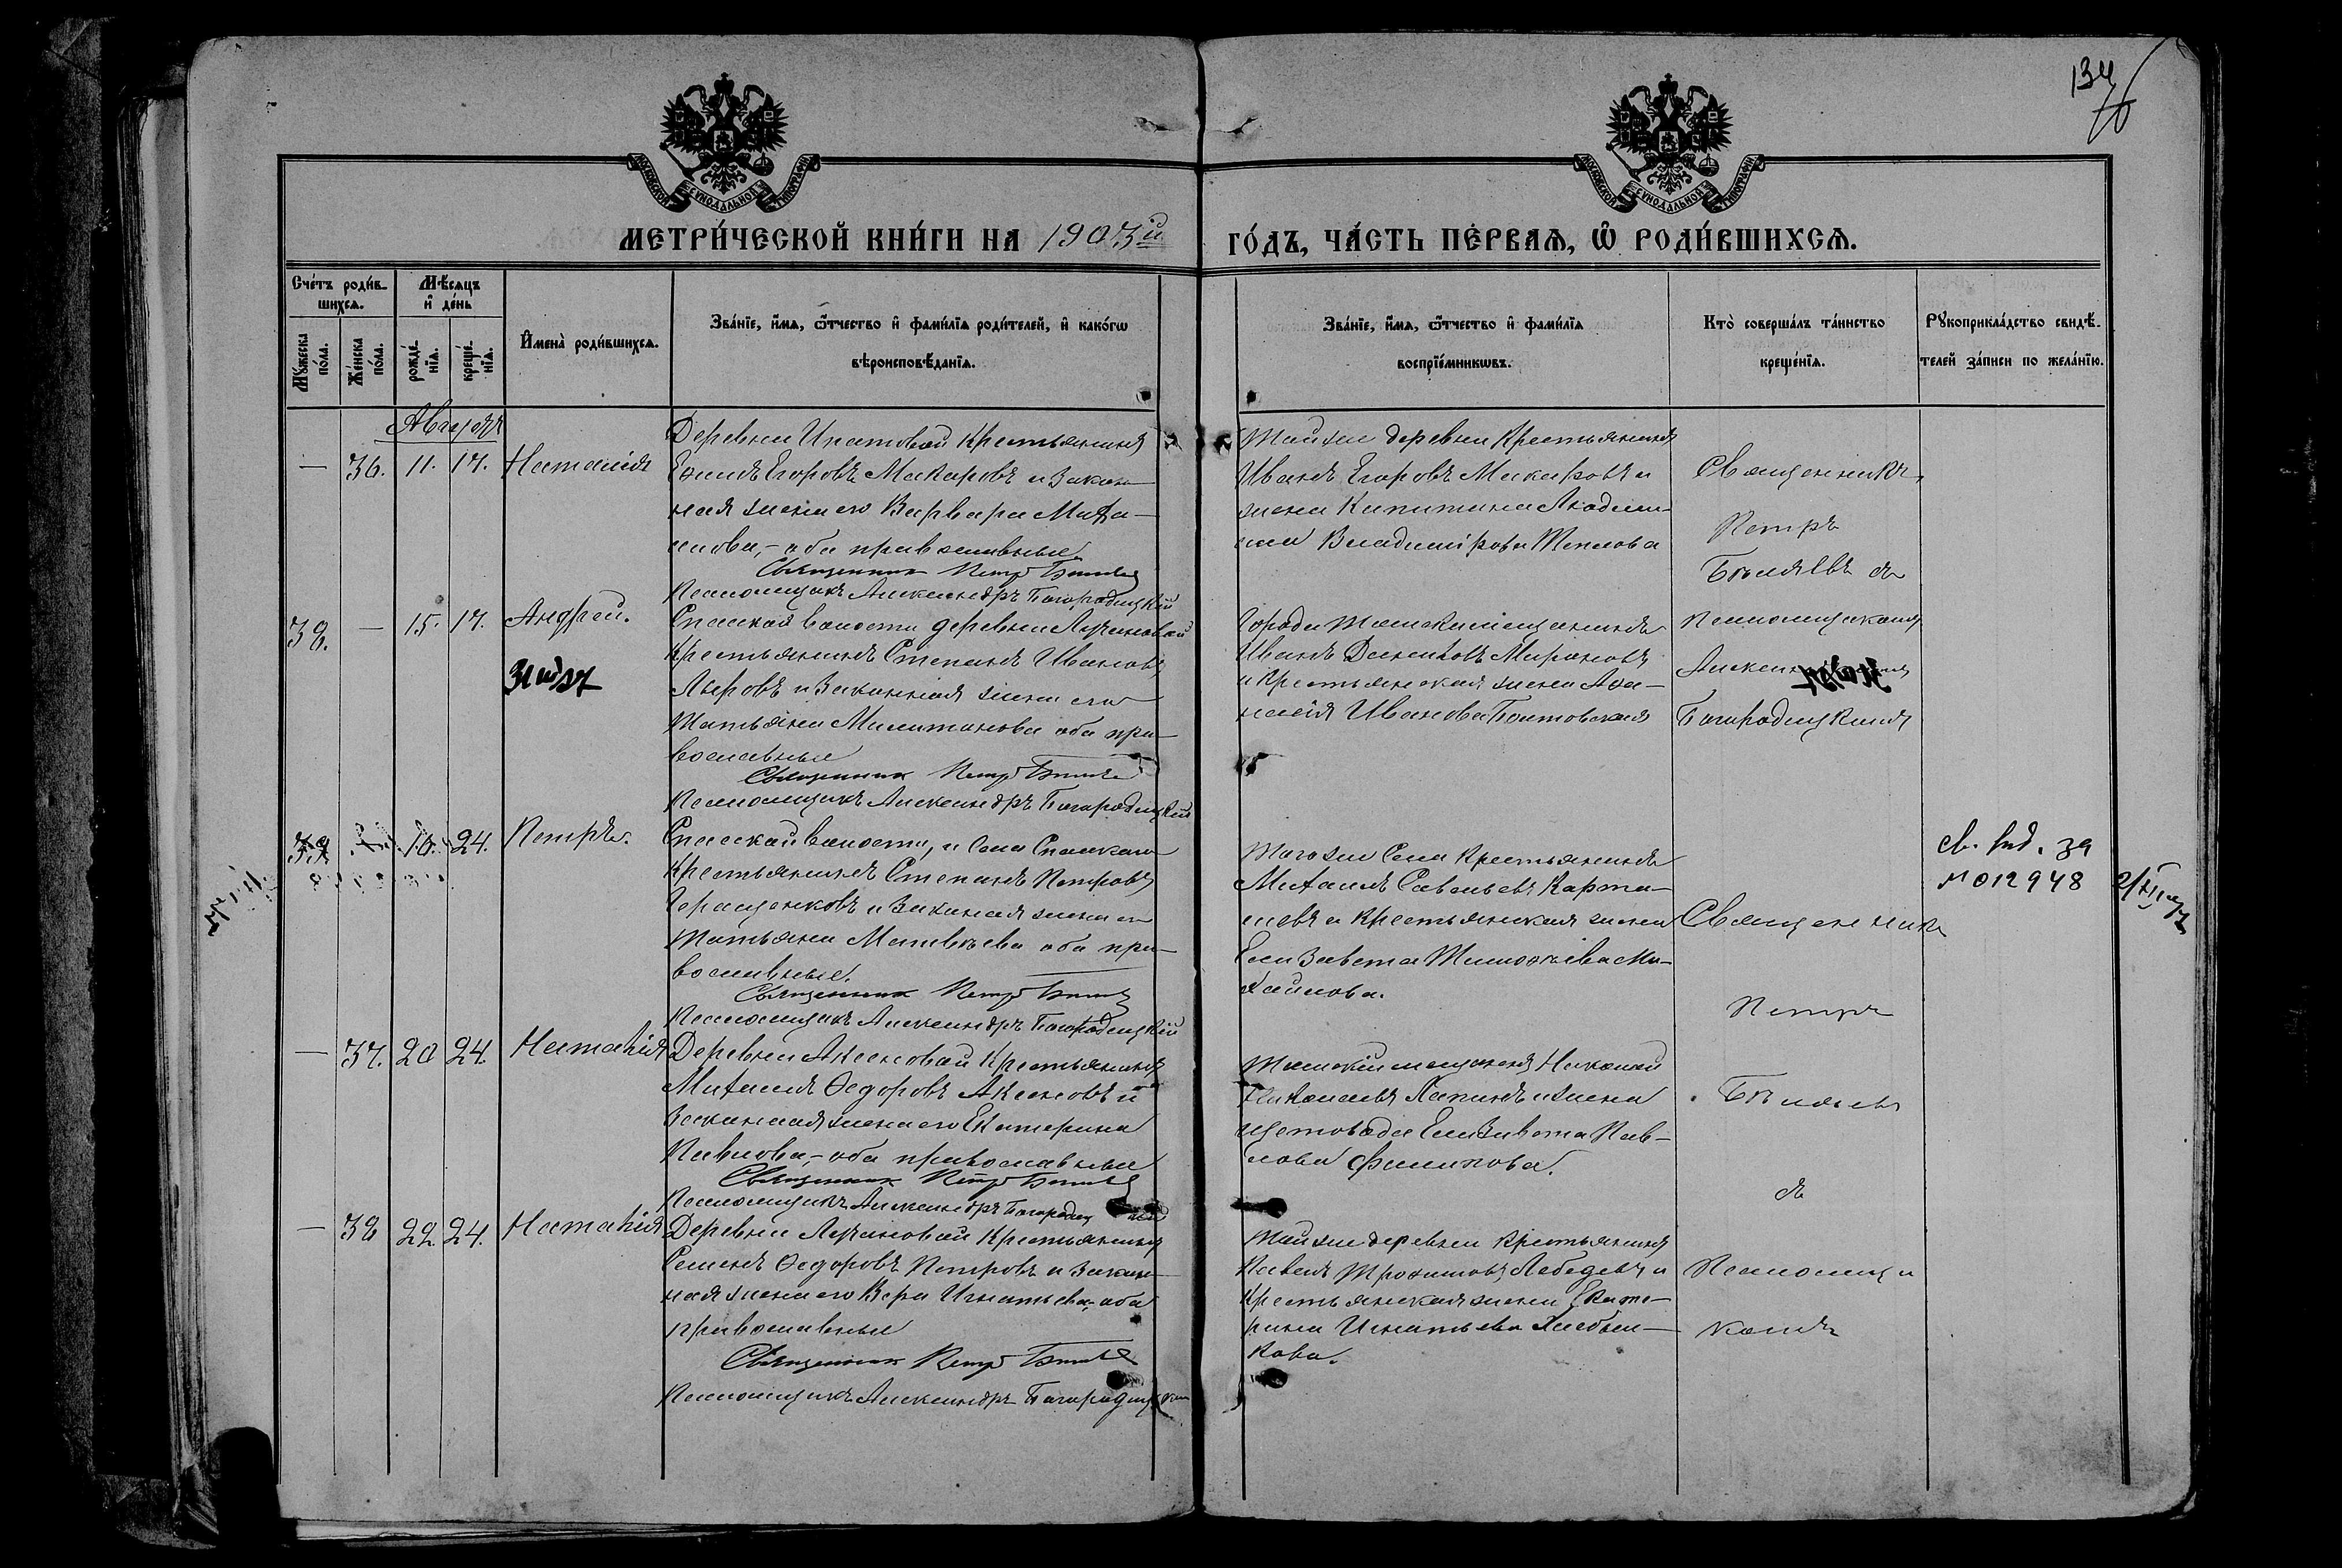 134
МОСКОВСКОЙ СѴНОДАЛЬНОЙ ТИПОГРАФІИ
МОСКОВСКОЙ СѴНОДАЛЬНОЙ ТИПОГРАФІИ
МЕТРИ́ЧЕСКОЙ КНИ́ГИ НА 1903й
ГО́ДЪ, ЧА́СТЬ ПЕ́РВАѦ, Ѽ РОДИ́ВШИХСѦ.
Сче́тъ роди́в-
шихсѧ.
Мꙋ́жеска по́ла.
Же́нска по́ла.
Мѣ́сяцъ
и҆ де́нь
рожде́-
нїѧ.
креще́-
нїѧ.
И҆мена̀ роди́вшихсѧ.
Зва́нїе, и҆́мѧ, ѻ҆́тчество и҆ фами́лїѧ роди́телей, и҆ како́гѡ
вѣроисповѣ́данїѧ.
Зва́нїе, и҆́мѧ, ѻ҆́тчество и҆ фами́лїѧ
воспрїе́мникѡвъ.
Кто̀ соверша́лъ та́инство
креще́нїѧ.
Рꙋкоприкла́дство свидѣ́-
телей за́писи по жела́нїю.
Августъ
— 36. 11. 17. Наталія
Деревни Ипатовой крестьянинъ
Егоровъ Макаровъ и закон-
ная жена его Варвара Михаи-
лова, – оба православные
Священникъ Петръ Бѣляевъ
Псаломщикъ Александръ Богородицкій
Той же деревни крестьянинъ
Иванъ Егоровъ Макаровъ и
жена Капитана
Владимірова Теплова
Священникъ
Петръ
Бѣляевъ съ
псаломщикомъ
Александромъ
Богородицкимъ
38. — 15. 17. Андрей.
Спасской волости деревни Лучановой
крестьянинъ Степанъ Ивановъ
Лавровъ и законная жена его
Татьяна Милитонова оба пра-
вославные
Священникъ Петръ Бѣляевъ
Псаломщикъ Александръ Богородицкій
Города Томска мещанинъ
Иванъ Мироновъ
и крестьянская жена Афа-
насія Иванова
39. 16. 24. Петръ.
Спасской волости, и села Спасскаго
крестьянинъ Степанъ Петровъ
Геращенковъ и законная жена его
Татьяна Матвѣева оба пра-
вославные.
Священникъ Петръ Бѣляевъ
Псаломщикъ Александръ Богородицкій
Того же села крестьянинъ
Михаилъ Савельевъ Карта-
шевъ и крестьянская жена
Елизавета Тимофѣева Ми-
хайлова.
Священникъ
Петръ
Бѣляевъ
съ
псаломщи
комъ
св. выд. за
№ 012948
— 37. 20 24. Наталія
Деревни Аксеновой крестьянинъ
Михаилъ Ѳедоровъ Аксеновъ и
законная жена его Екатерина
Павлова, – оба православные
Священникъ Петръ Бѣляевъ
Псаломщикъ Александръ Богородицкій
Томскій мещанинъ Николай
Николаевъ Лапинъ и жена
щетовода Елизавета Пав-
лова Филипова.
— 38 22. 24. Наталія
Деревни Лучановой крестьянинъ
Семенъ Ѳедоровъ Петровъ и закон-
ная жена его Вера Игнатьева, оба
православные
Священникъ Петръ Бѣляевъ
Псаломщикъ Александръ Богородицкій
Той же деревни крестьянинъ
Павелъ Трофимовъ Лебедевъ и
крестьянская жена Екате-
рина Игнатьева Хлебни-
кова.